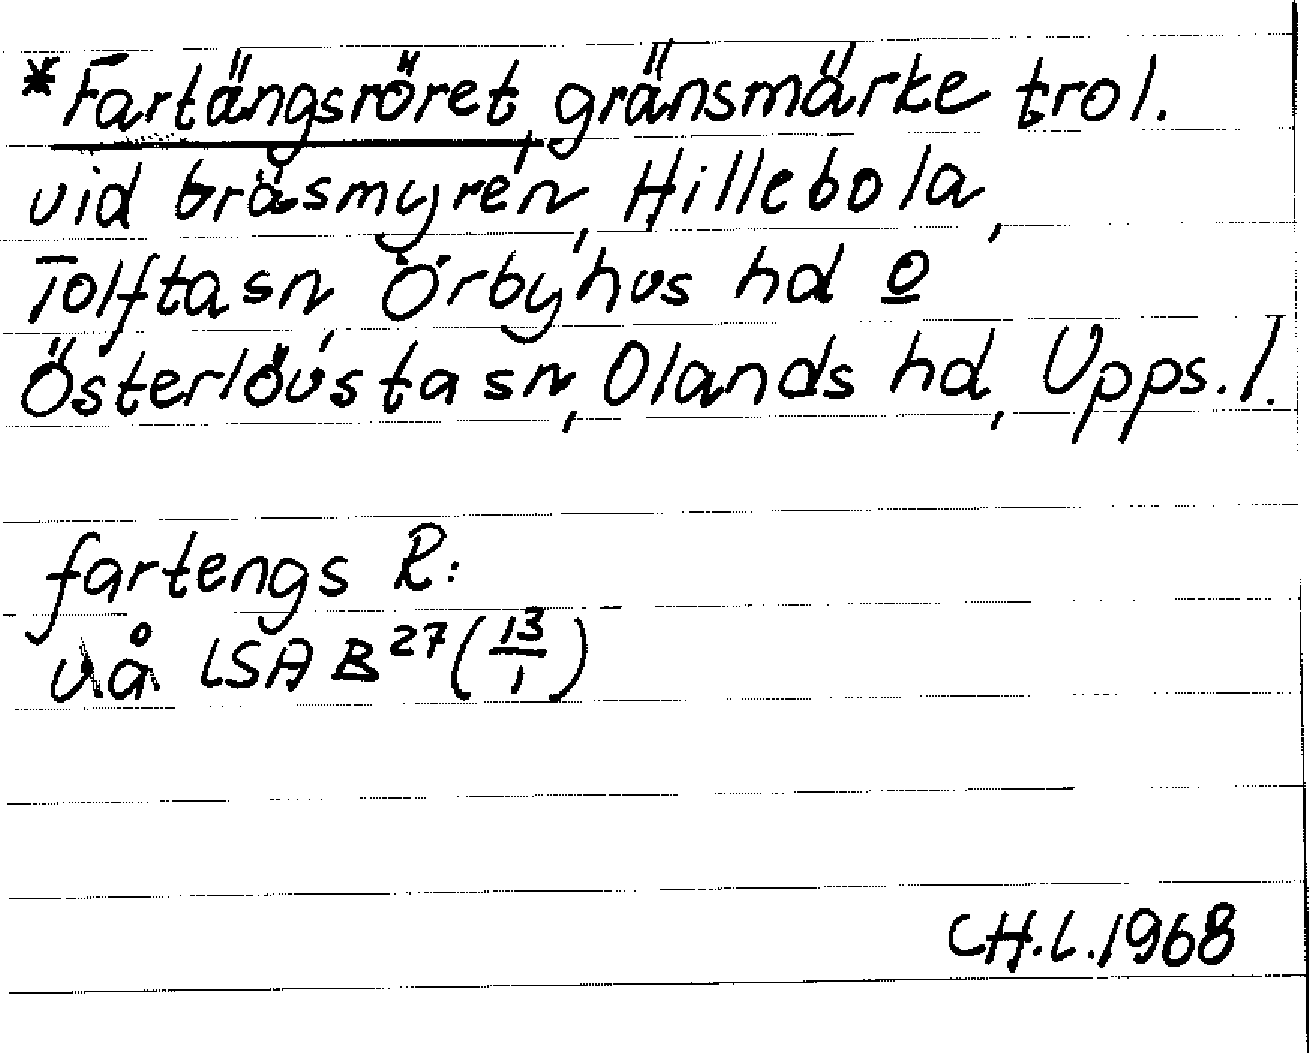 *Fartängsröret, gränsmärke trol.
vid Gräsmyren, Hillebola,
Tolfta sn, Örbyhus hd o
Österlövsta sn, Olands hd, Upps. l.
fartengs R:
vå LSA B 27 (13/1)
CH.L. 1968